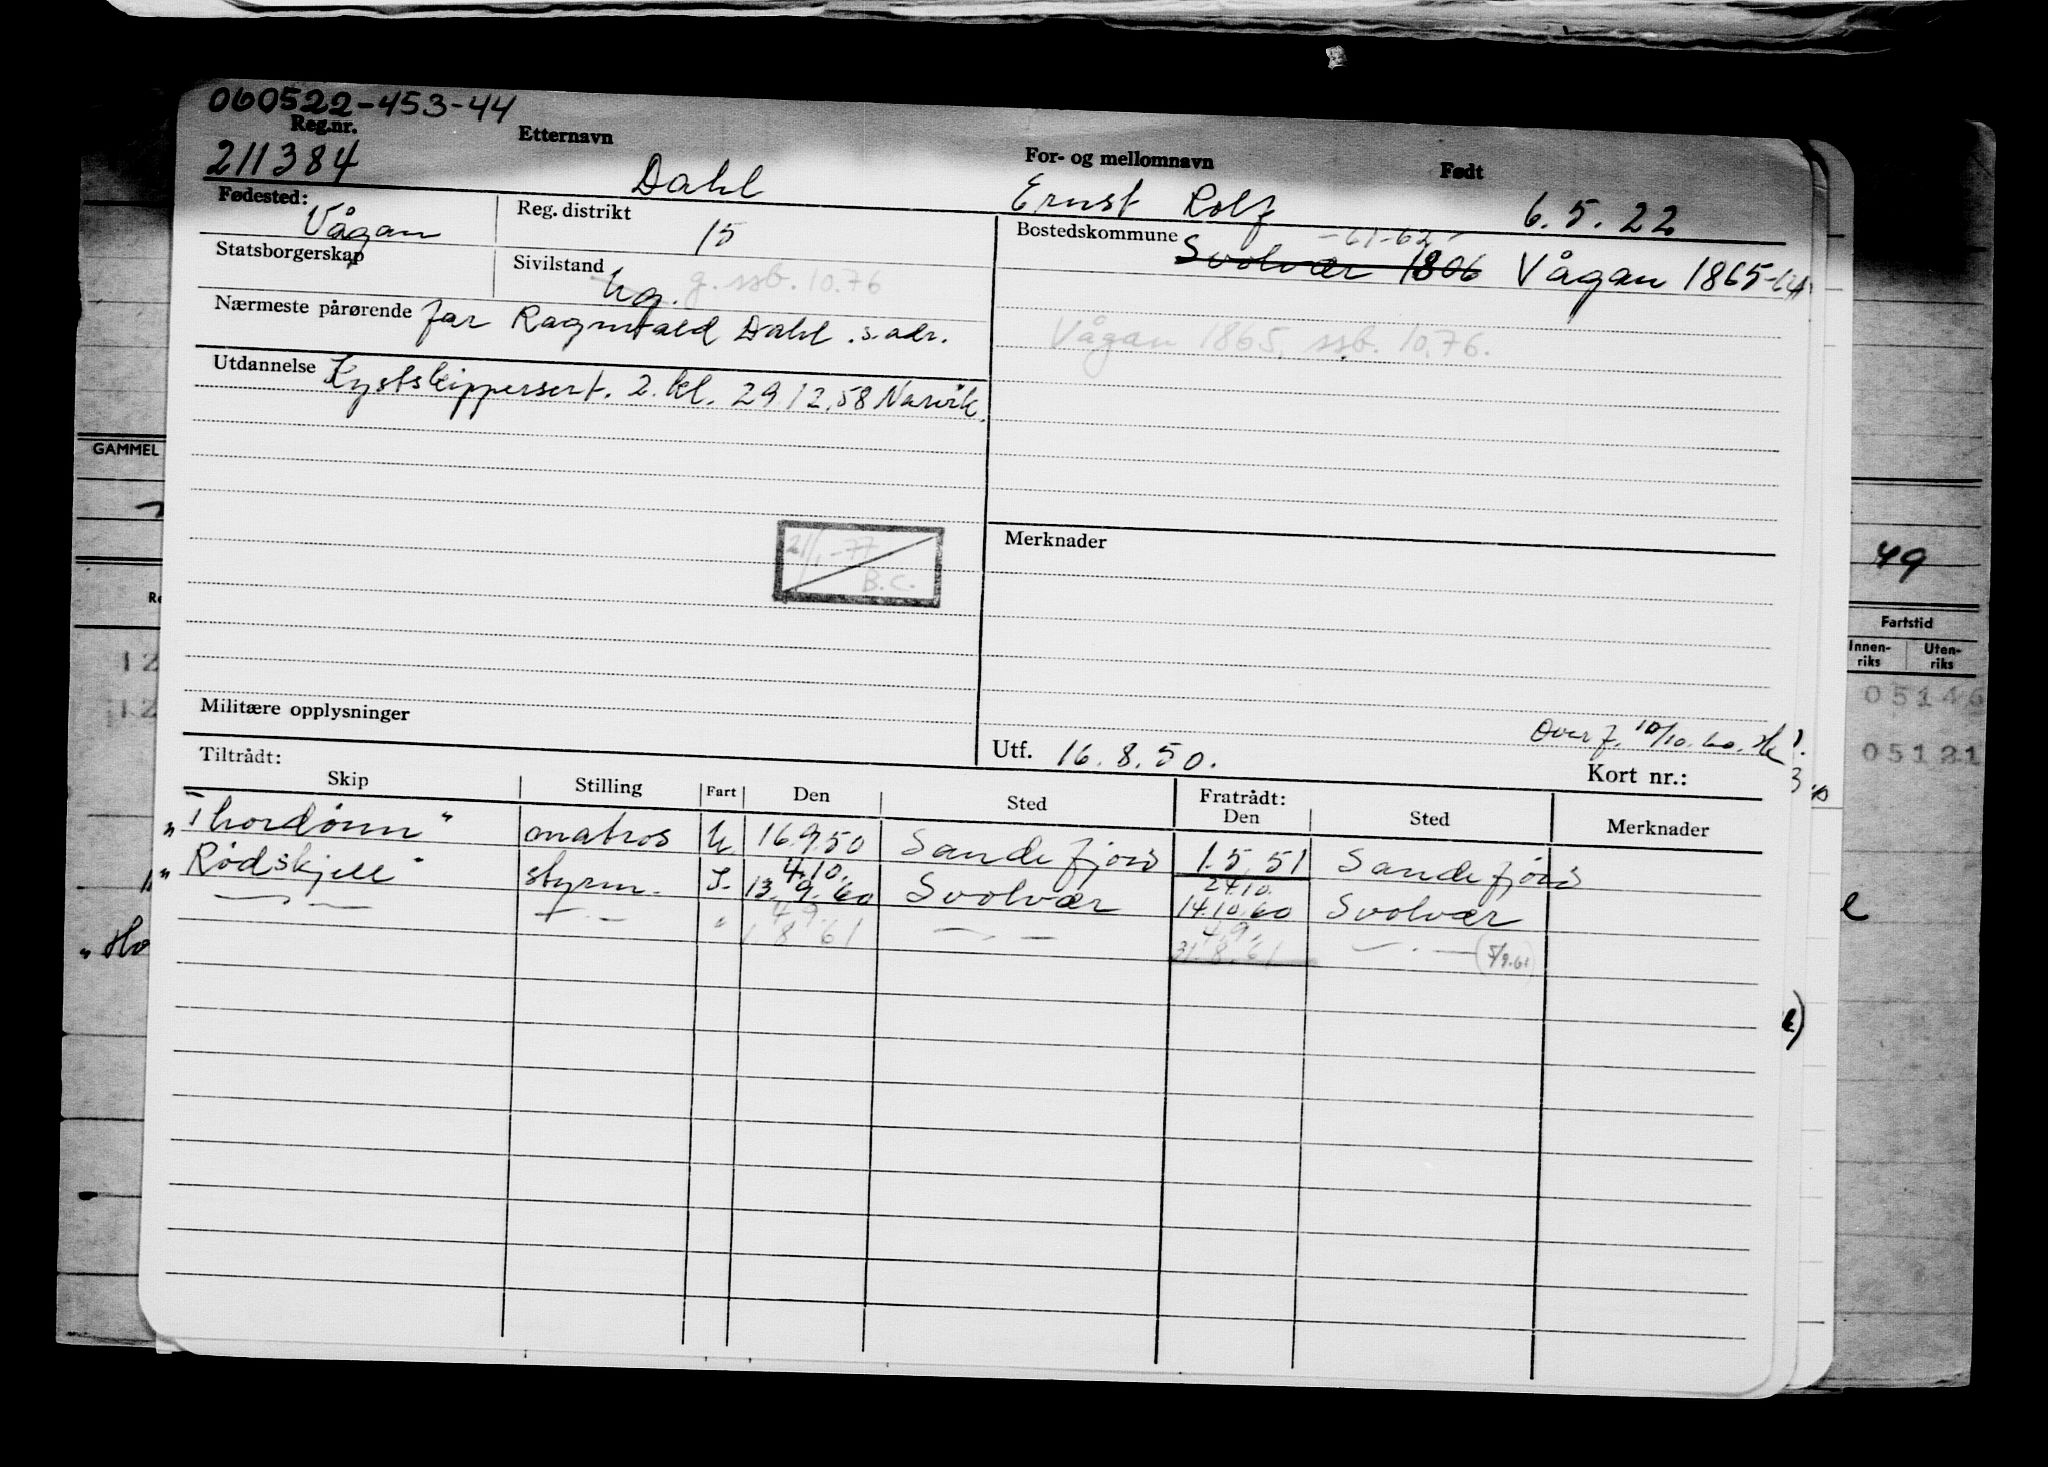 060522-453-44
Reg.nr. Etternavn For- og mellomnavn Født
211384 Dahl Ernst Rolf 6.5.22
Fødested: Vågan Reg. distrikt 15 Bostedskommune -61-62-
Svolvær 1806 Vågan 1865-64
Statsborgerskap Sivilstand ug. g. ssb. 10.76
Nærmeste pårørende far Ragnvald Dahl s. adr.
Vågan 1865. ssb. 10.76.
Utdannelse Kystskippersert. 2. kl. 29 12.58 Narvik.
GAMMEL
21/1-77
B.C.
Merknader
49
Fartstid
Innen-riks Uten-riks
05146
05121
12
12
Militære opplysninger
Overf. 10/10.60. Hk
Utf. 16.8.50.
Kort nr.:
Tiltrådt: Fratrådt:
Skip Stilling Fart Den Sted Den Sted Merknader
"Thordønn" matros U. 16.9.50 Sandefjord 1.5.51 Sandefjord
4.10. 24.10.
"Rødskjell" styrm. I. 13.9.60 Svolvær 14.10.60 Svolvær
4.9. 4.9.
— " — — " — " 1.8.61 — " — 31.8.61 — " — (5/9.61)
"Ho